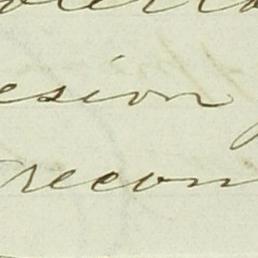 esion
recon